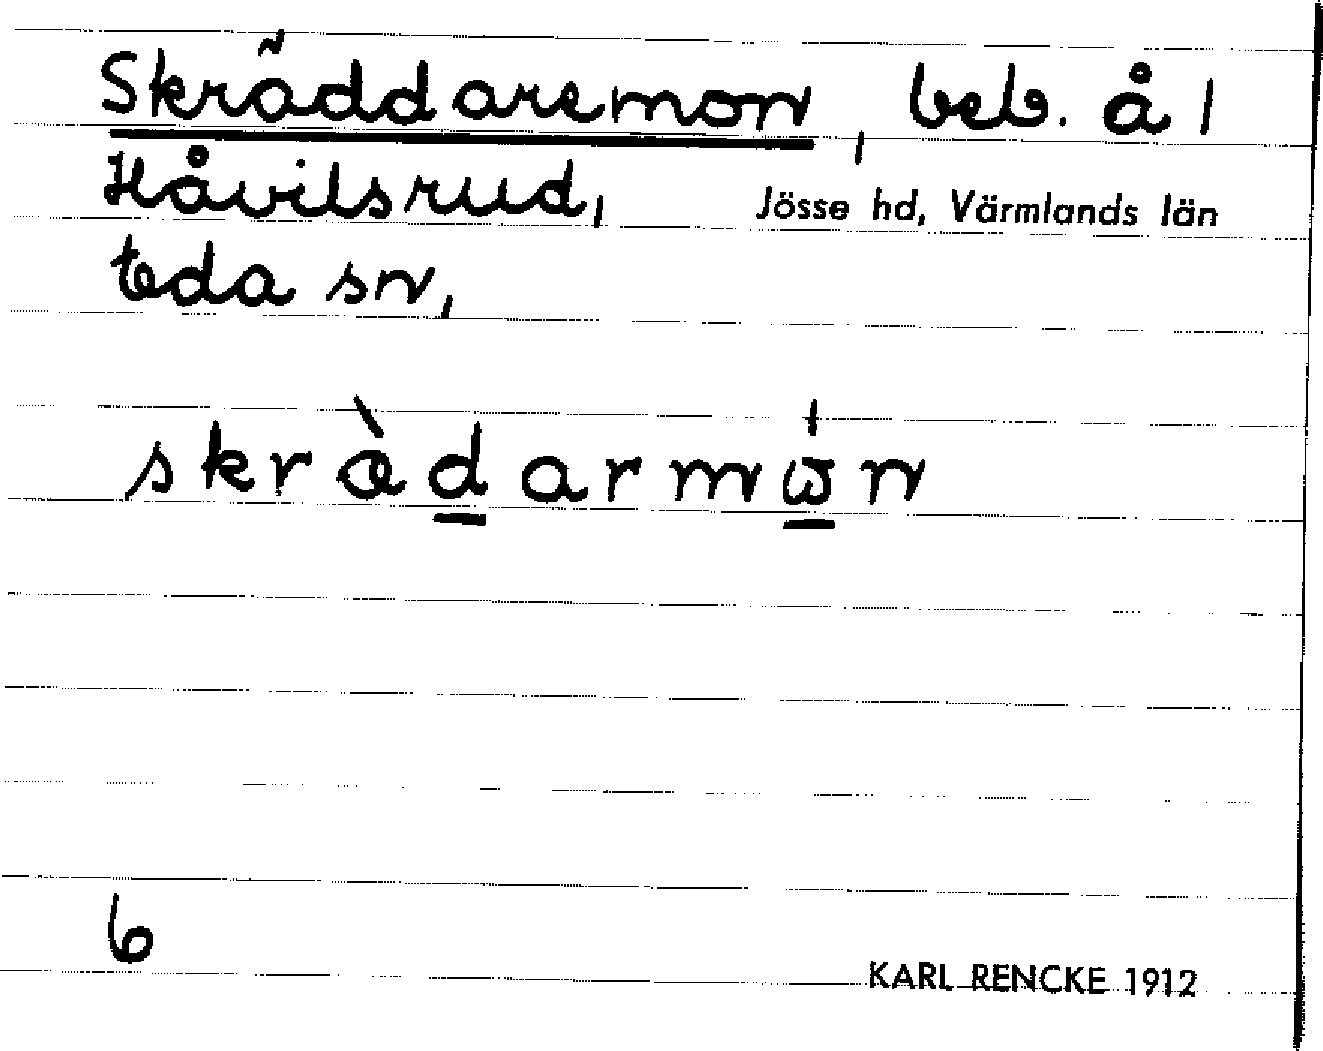 Skräddaremon, beb. å 1
Håvilsrud, Jösse hd, Värmlands län
Eda sn,
skrædarmωn
6
KARL RENCKE 1912